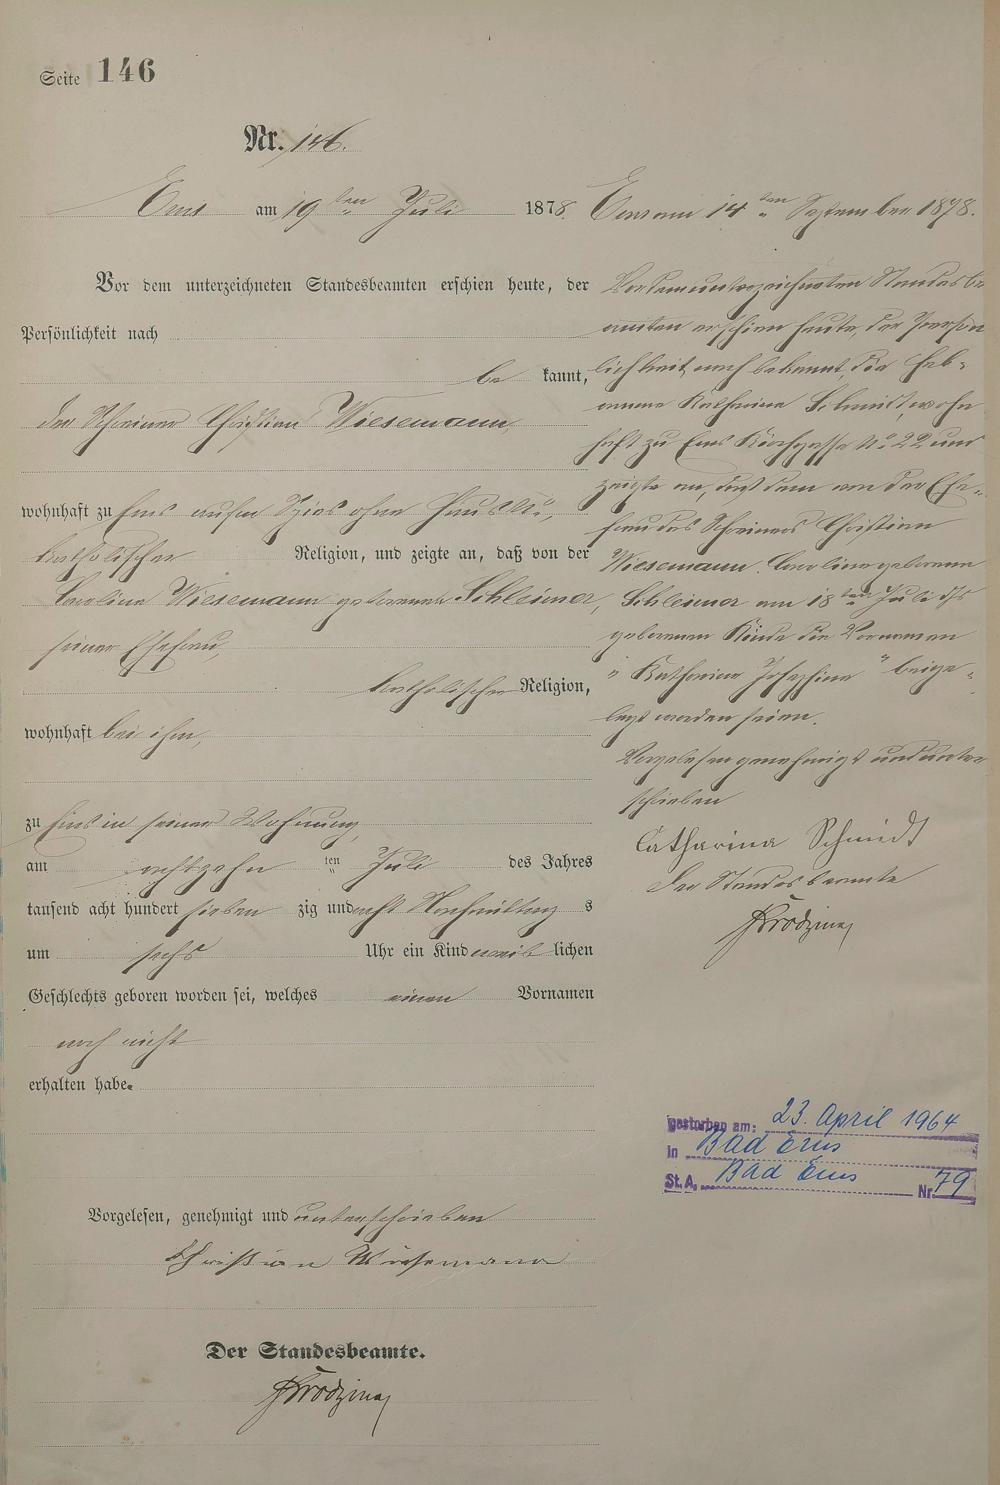 Seite 146
Nr. 146.
Ems am 19ten Juli 1878.
Vor dem unterzeichneten Standesbeamten erschien heute, der
Persönlichkeit nach
be kannt,
der Schreiner Christian Wiesemann,
wohnhaft zu Ems auf'm Spies ohne Haus No.,
katholischer Religion, und zeigte an, daß von der
Caroline Wiesemann geborenen Schleimer,
seiner Ehefrau,
katholischer Religion,
wohnhaft bei ihm,
zu Ems in seiner Wohnung,
am achtzehn ten Juli des Jahres
tausend acht hundert sieben zig und acht Nachmittag s
um sechs Uhr ein Kind weib lichen
Geschlechts geboren worden sei, welches einen Vornamen
noch nicht
erhalten habe.
Vorgelesen, genehmigt und unterschrieben
Christian Wiesemann
Der Standesbeamte.
Ems am 14ten September 1878.
Vor dem unterzeichneten Standesbe-
amten erschien heute, der Persön
lichkeit nach bekannt, die Heb-
amme Katharina Schmidt, wohn
haft zu Ems Kirchgasse No. 22 und
zeigte an, daß dem von der Ehe-
frau des Schreiners Christian
Wiesemann, Caroline geborenen
Schleimer am 18ten Juli d. Js
geborenen Kinde die Vornamen
"Katharina Josephine" beige-
legt worden seien.
Vorgelesen genehmigt und unter
schrieben
Catharina Schmidt
Der Standesbeamte
gestorben am: 23. April 1964
in Bad Ems
St. A. Bad Ems Nr. 79